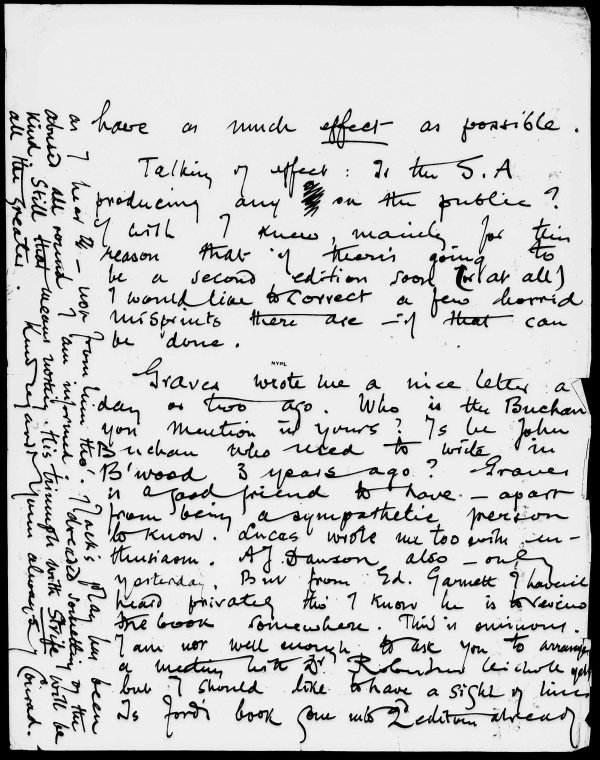 have as much effect as possible.
Talking of effect: Is the S.A
producing any on the public?
I wish I knew, mainly for this
reason that if there's going to
be a second edition soon (or at all)
I would like to correct a few horrid
misprints there are – if that can
be done.
NYPL
Graves wrote me a nice letter a
day or two ago. Who is the Buchan
you mention in yours? Is he John
Buchan who used to write in
B'wood 3 years ago? Graves
is a good friend to have – apart
from being a sympathetic person
to know. Lucas wrote me too with en-
thusiasm. AJ. Dawson also – only
yesterday. But from Ed. Garnett I haven't
heard privately tho' I know he is to review
the book somewhere. This is ominous.
I am not well enough to ask you to arrange
a meeting with Dr Robertson Nicholl yet
but I should like to have a sight of him
Is Ford's book gone into 2d edition already
as I hear – not from him tho'. Jack's play has been
abused all round I am informed. I dreaded something of the
kind. Still that means nothing. His triumph with Strife will be
all the greater. Kind regards Yours always J Conrad.